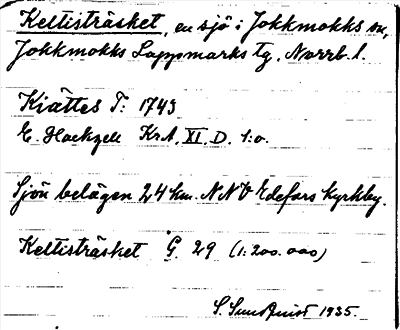 Keltisträsket, en sjö i Jokkmokks sn,
Jokkmokks Lappmarks tg, Norrb. l.
Kiättes T: 1743
E. Hackzell Kr.A. XI. D. 1:0.
Sjön belägen 24 km. NNV Edefors kyrkby.
Keltisträsket G. 29 (1:200.000)
S. Sundquist 1935.